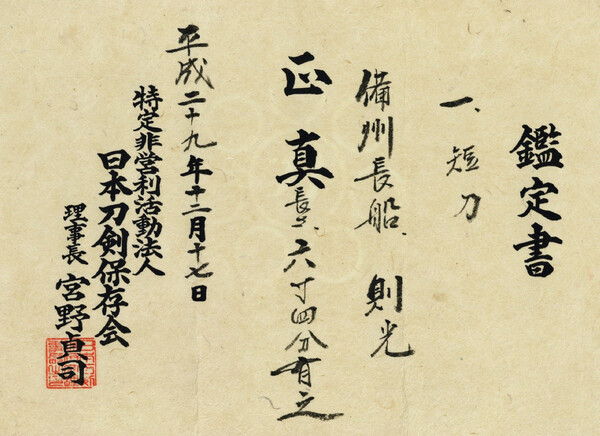 鑑定書
一、短刀
備州長船、則光
正真
長サ、六寸四分有之
平成二十九年十二月十七日
特定非営利活動法人
日本刀剣保存会
理事長 宮野貞司